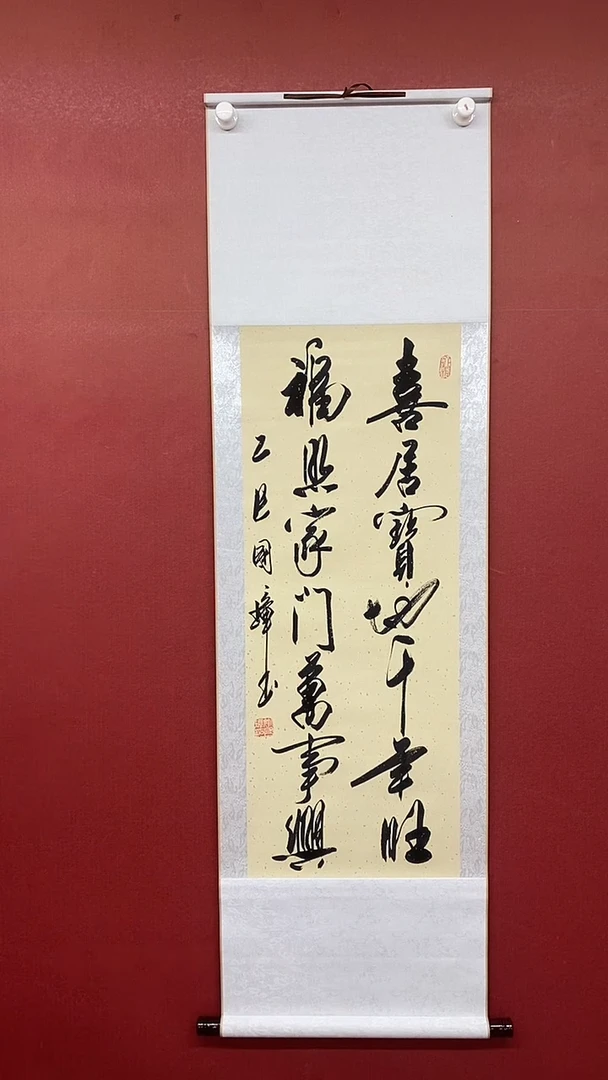 喜居寶地千年旺
福照家門萬事興
乙巳國璋书